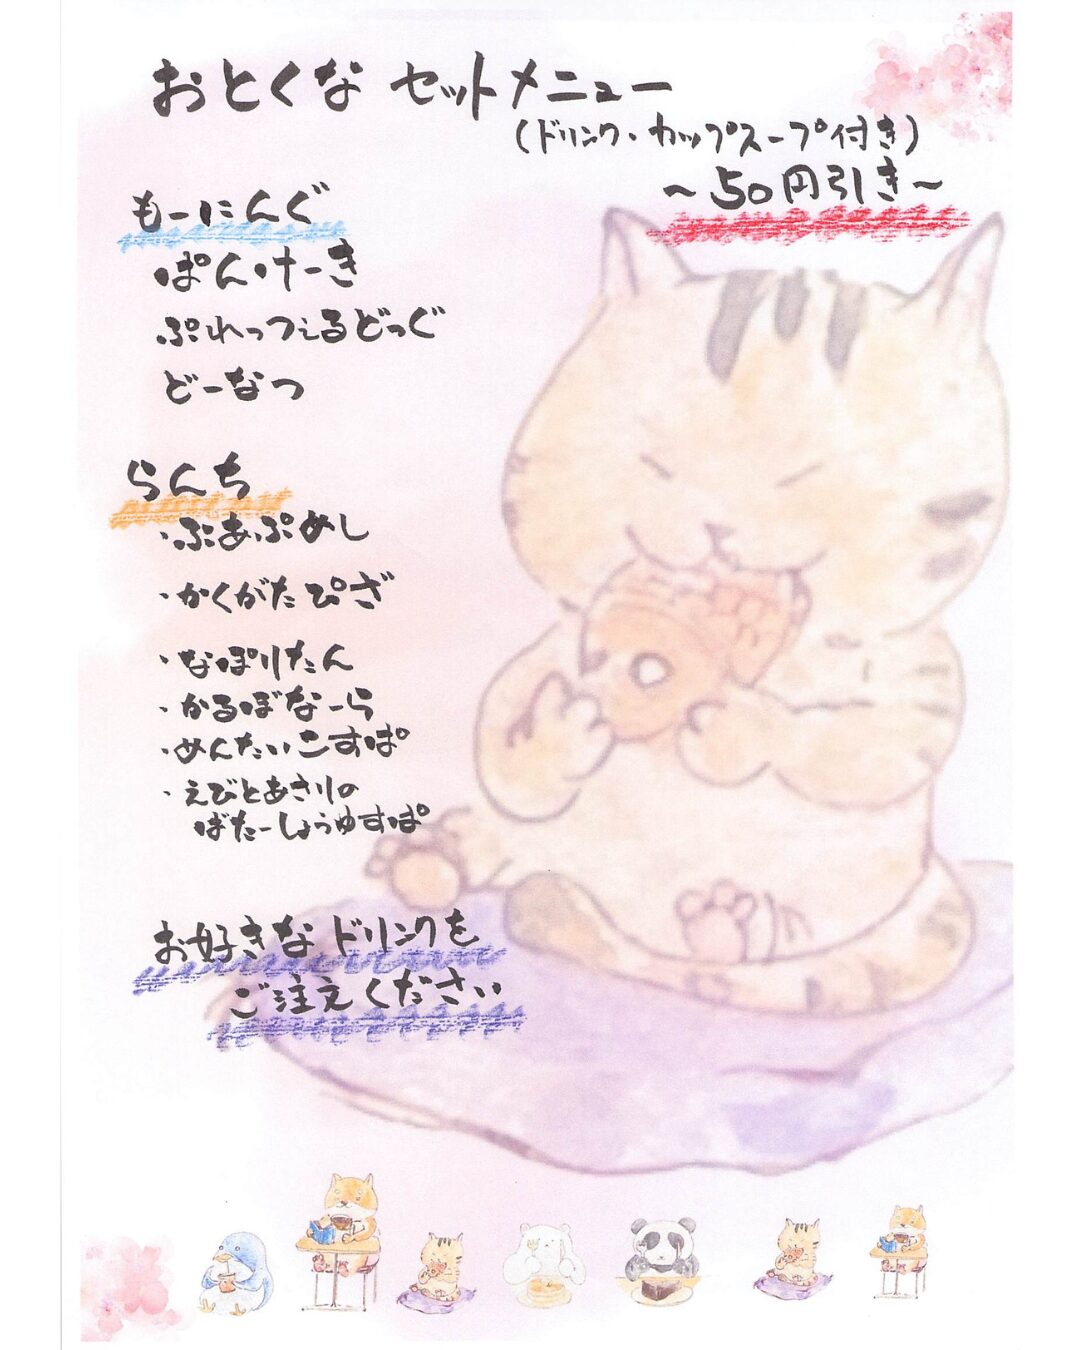 おとくな セットメニュー
(ドリンク・カップスープ付き)
～50円引き～
もーにんぐ
ぱんけーき
ぷれっつぇるどっぐ
どーなつ
らんち
・ぷあぷめし
・かくがたぴざ
・なぽりたん
・かるぼなーら
・めんたいこすぱ
・えびとあさりの
ばたーしょうゆすぱ
お好きなドリンクを
ご注文ください